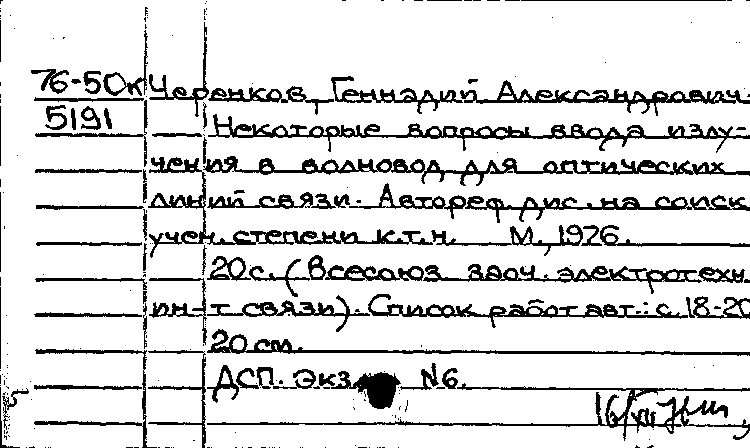 76-50к Черенков, Геннадий Александрович.
5191 Некоторые вопросы ввода излу-
чения в волновод для оптических
линий связи. Автореф. дис. на соиск.
учен. степени к.т.н. М., 1976.
20 с. (Всесоюз. заоч. электротехн.
ин-т связи). Список работ авт.: с. 18-20
20 см.
ДСП. Экз. N6.
5 16/XII